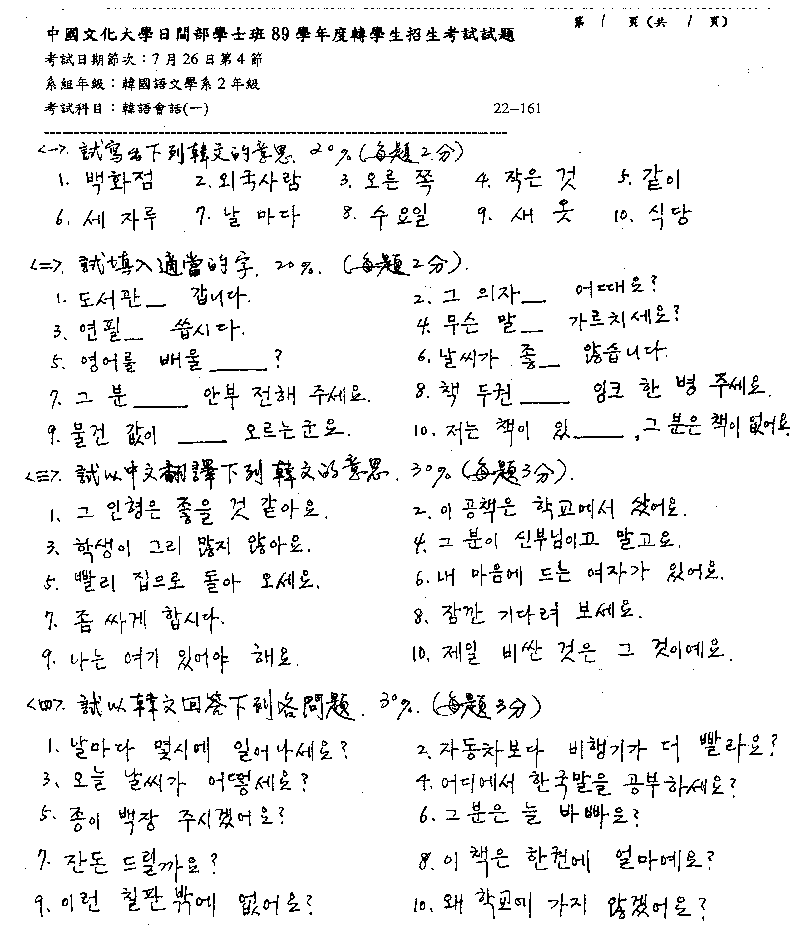 第 1 頁(共 1 頁)
中國文化大學日間部學士班89學年度轉學生招生考試試題
考試日期節次：7月26日第4節
系組年級：韓國語文學系2年級
考試科目：韓語會話(一) 22-161
<一>. 試寫出下列韓文的意思. 20% (每題2分)
1. 백화점 2. 외국사람 3. 오른 쪽 4. 작은 것 5. 같이
6. 세 자루 7. 날 마다 8. 수요일 9. 새 옷 10. 식당
<二>. 試填入適當的字. 20%. (每題2分).
1. 도서관__ 갑니다. 2. 그 의자__ 어때요?
3. 연필__ 씁시다. 4. 무슨 말__ 가르치세요?
5. 영어를 배울 _____? 6. 날씨가 좋__ 않습니다.
7. 그 분 _____ 안부 전해 주세요. 8. 책 두권 _____ 잉크 한 병 주세요.
9. 물건 값이 _____ 오르는군요. 10. 저는 책이 있_____, 그 분은 책이 없어요
<三>. 試以中文翻譯下列韓文的意思. 30% (每題3分).
1. 그 인형은 좋을 것 같아요. 2. 이 공책은 학교에서 샀어요.
3. 학생이 그리 많지 않아요. 4. 그 분이 신부님이고 말고요.
5. 빨리 집으로 돌아 오세요. 6. 내 마음에 드는 여자가 있어요.
7. 좀 싸게 합시다. 8. 잠깐 기다려 보세요.
9. 나는 여기 있어야 해요. 10. 제일 비싼 것은 그 것이예요.
<四>. 試以韓文回答下列各問題. 30%. (每題3分)
1. 날마다 몇시에 일어나세요? 2. 자동차보다 비행기가 더 빨라요?
3. 오늘 날씨가 어떻세요? 4. 어디에서 한국말을 공부하세요?
5. 종이 백장 주시겠어요? 6. 그분은 늘 바빠요?
7. 잔돈 드릴까요? 8. 이 책은 한권에 얼마예요?
9. 이런 칠판 밖에 없어요? 10. 왜 학교에 가지 않겠어요?